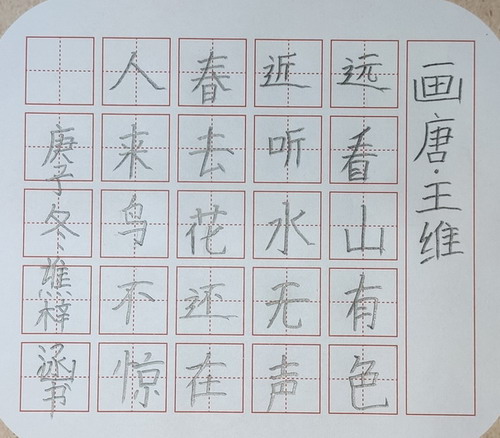 画唐·王维
远看山有色
近听水无声
春去花还在
人来鸟不惊
庚子冬樵梓涵书